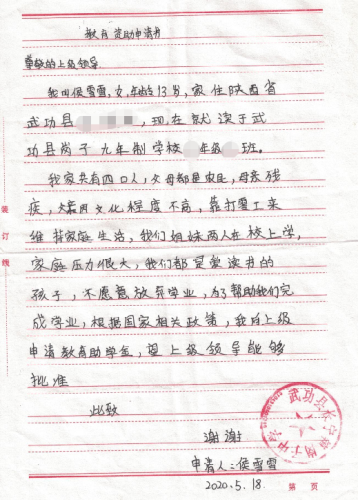 教育资助申请书
尊敬的上级领导
我叫侯雪雪,女,年龄13岁,家住陕西省
武功县 ,现在就读于武
功县尚于九年制学校 年级 班。
我家共有四口人,父母都是农民,母亲残
疾,父亲文化程度不高,靠打零工来
维持家庭生活,我们姐妹两人在校上学,
家庭压力很大,我们都是爱读书的
孩子,不愿意放弃学业,为了帮助我们完
成学业,根据国家相关政策,我向上级
申请教育助学金,望上级领导能够
批准
此致
谢谢
申请人:侯雪雪
2020.5.18.
装订线
武功县
第 页